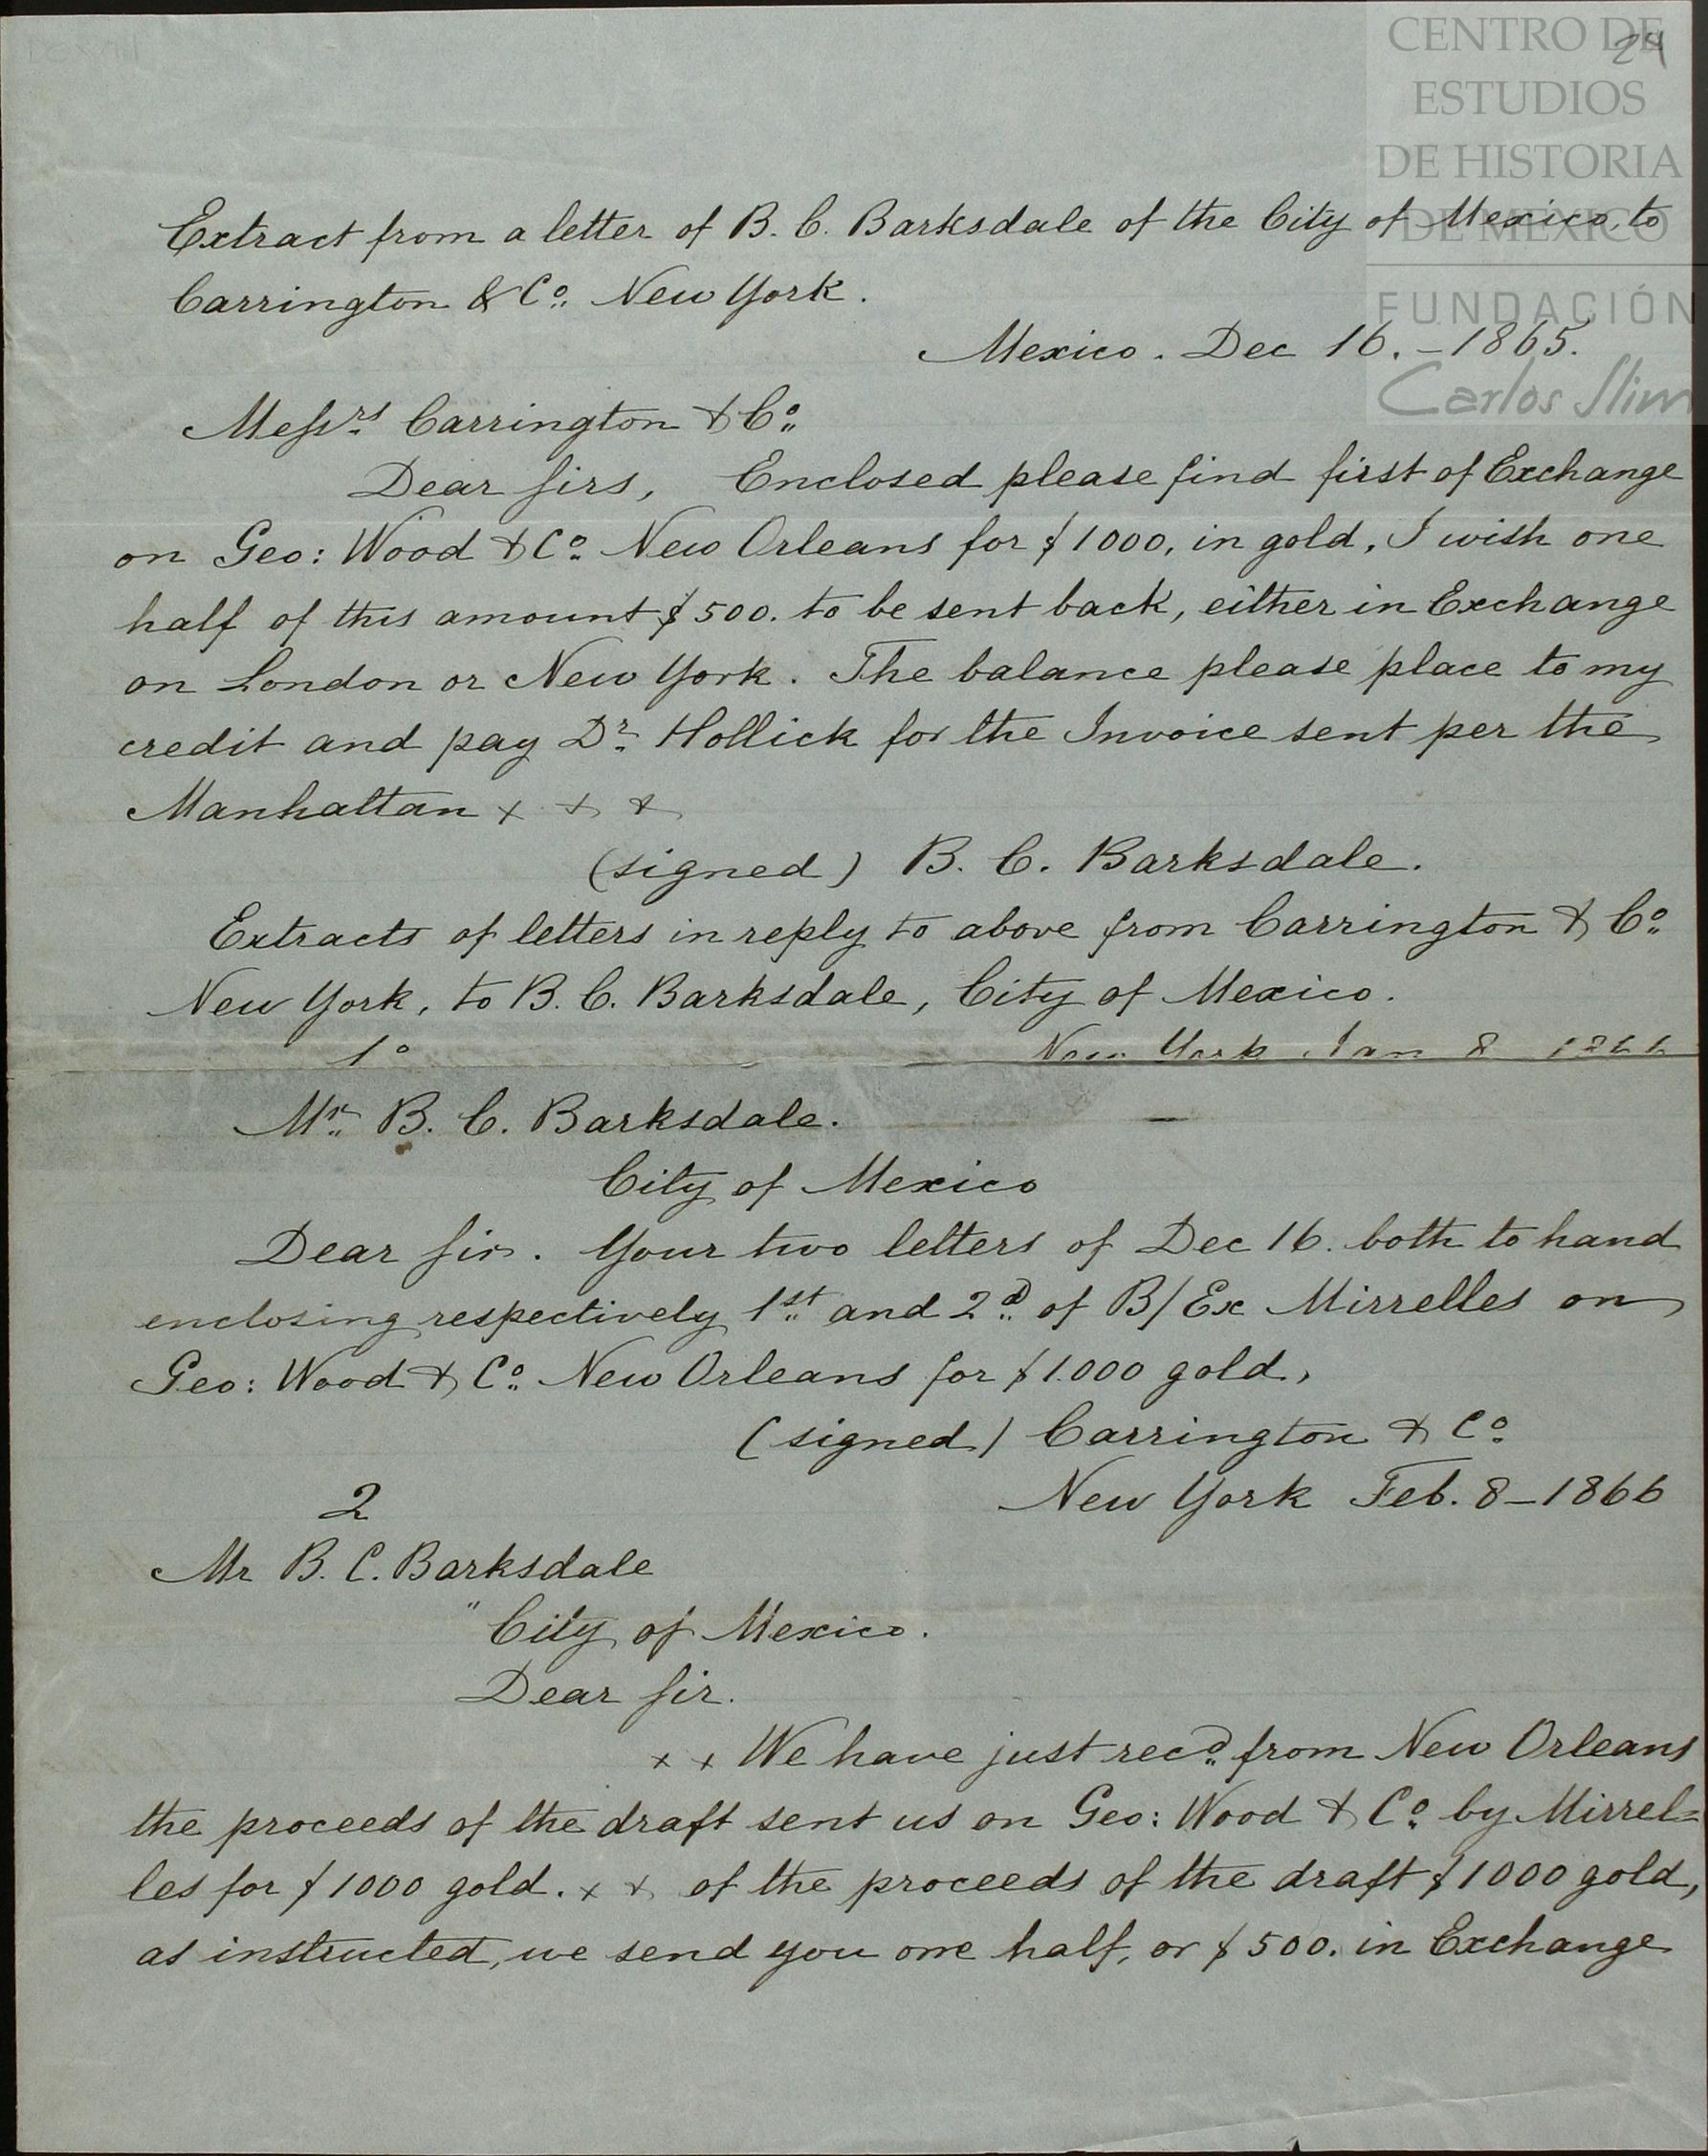 CENTRO DE
24
ESTUDIOS
DE HISTORIA
DE MÉXICO
FUNDACIÓN
Carlos Slim
Extract from a letter of B. C. Barksdale of the City of Mexico, to
Carrington & Co. New York.
Mexico. Dec 16. - 1865.
Messrs Carrington & Co.
Dear Sirs, Enclosed please find first of Exchange
on Geo: Wood & Co. New Orleans for $1000, in gold, I wish one
half of this amount $500. to be sent back, either in Exchange
on London or New York. The balance please place to my
credit and pay Dr. Hollick for the Invoice sent per the
Manhattan x x x
(signed) B. C. Barksdale.
Extracts of letters in reply to above from Carrington & Co.
New York, to B. C. Barksdale, City of Mexico.
1o New York Jan 8 1866
Mr. B. C. Barksdale.
City of Mexico
Dear Sir. Your two letters of Dec 16. both to hand
enclosing respectively 1st and 2d of B/Ex Mirrelles on
Geo: Wood & Co. New Orleans for $1.000 gold,
(signed) Carrington & Co.
New York Feb. 8 - 1866
2
Mr B. C. Barksdale
" City of Mexico.
Dear Sir.
x x We have just recd. from New Orleans
the proceeds of the draft sent us on Geo: Wood & Co. by Mirrel=
les for $1000 gold. x x of the proceeds of the draft $1000 gold,
as instructed, we send you one half, or $500. in Exchange